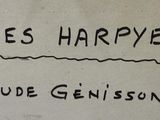 ES HARPYE
UDE GÉNISSON